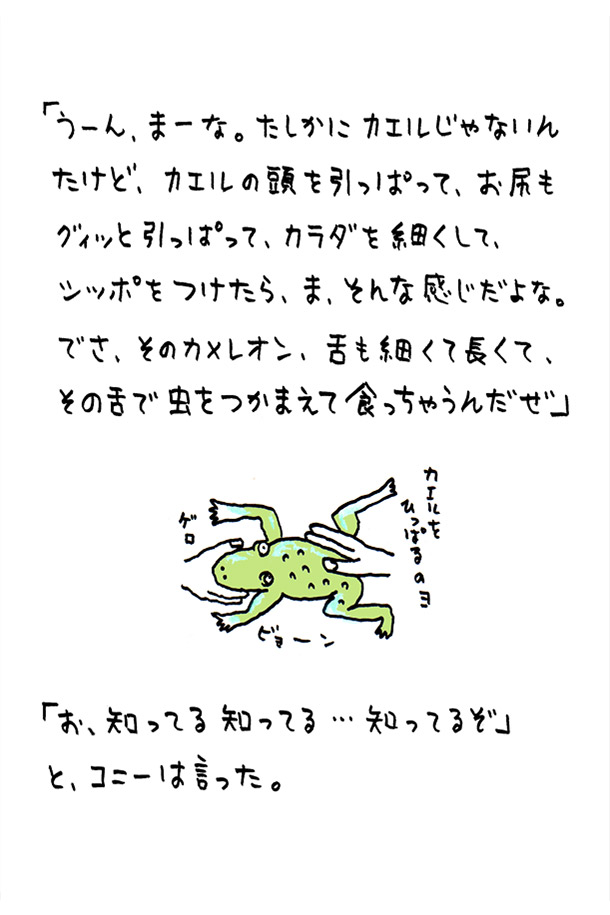 「うーん、まーな。たしかに カエルじゃないん
たけど、カエルの頭を引っぱって、お尻も
グィッと引っぱって、カラダを細くして、
シッポをつけたら、ま、そんな感じだよな。
でさ、そのカメレオン、舌も細くて長くて、
その舌で虫をつかまえて食っちゃうんだぜ」
カエルを
ひっぱるのヨ
ゲロ
ビョーン
「お、知ってる 知ってる … 知ってるぞ」
と、コニーは言った。